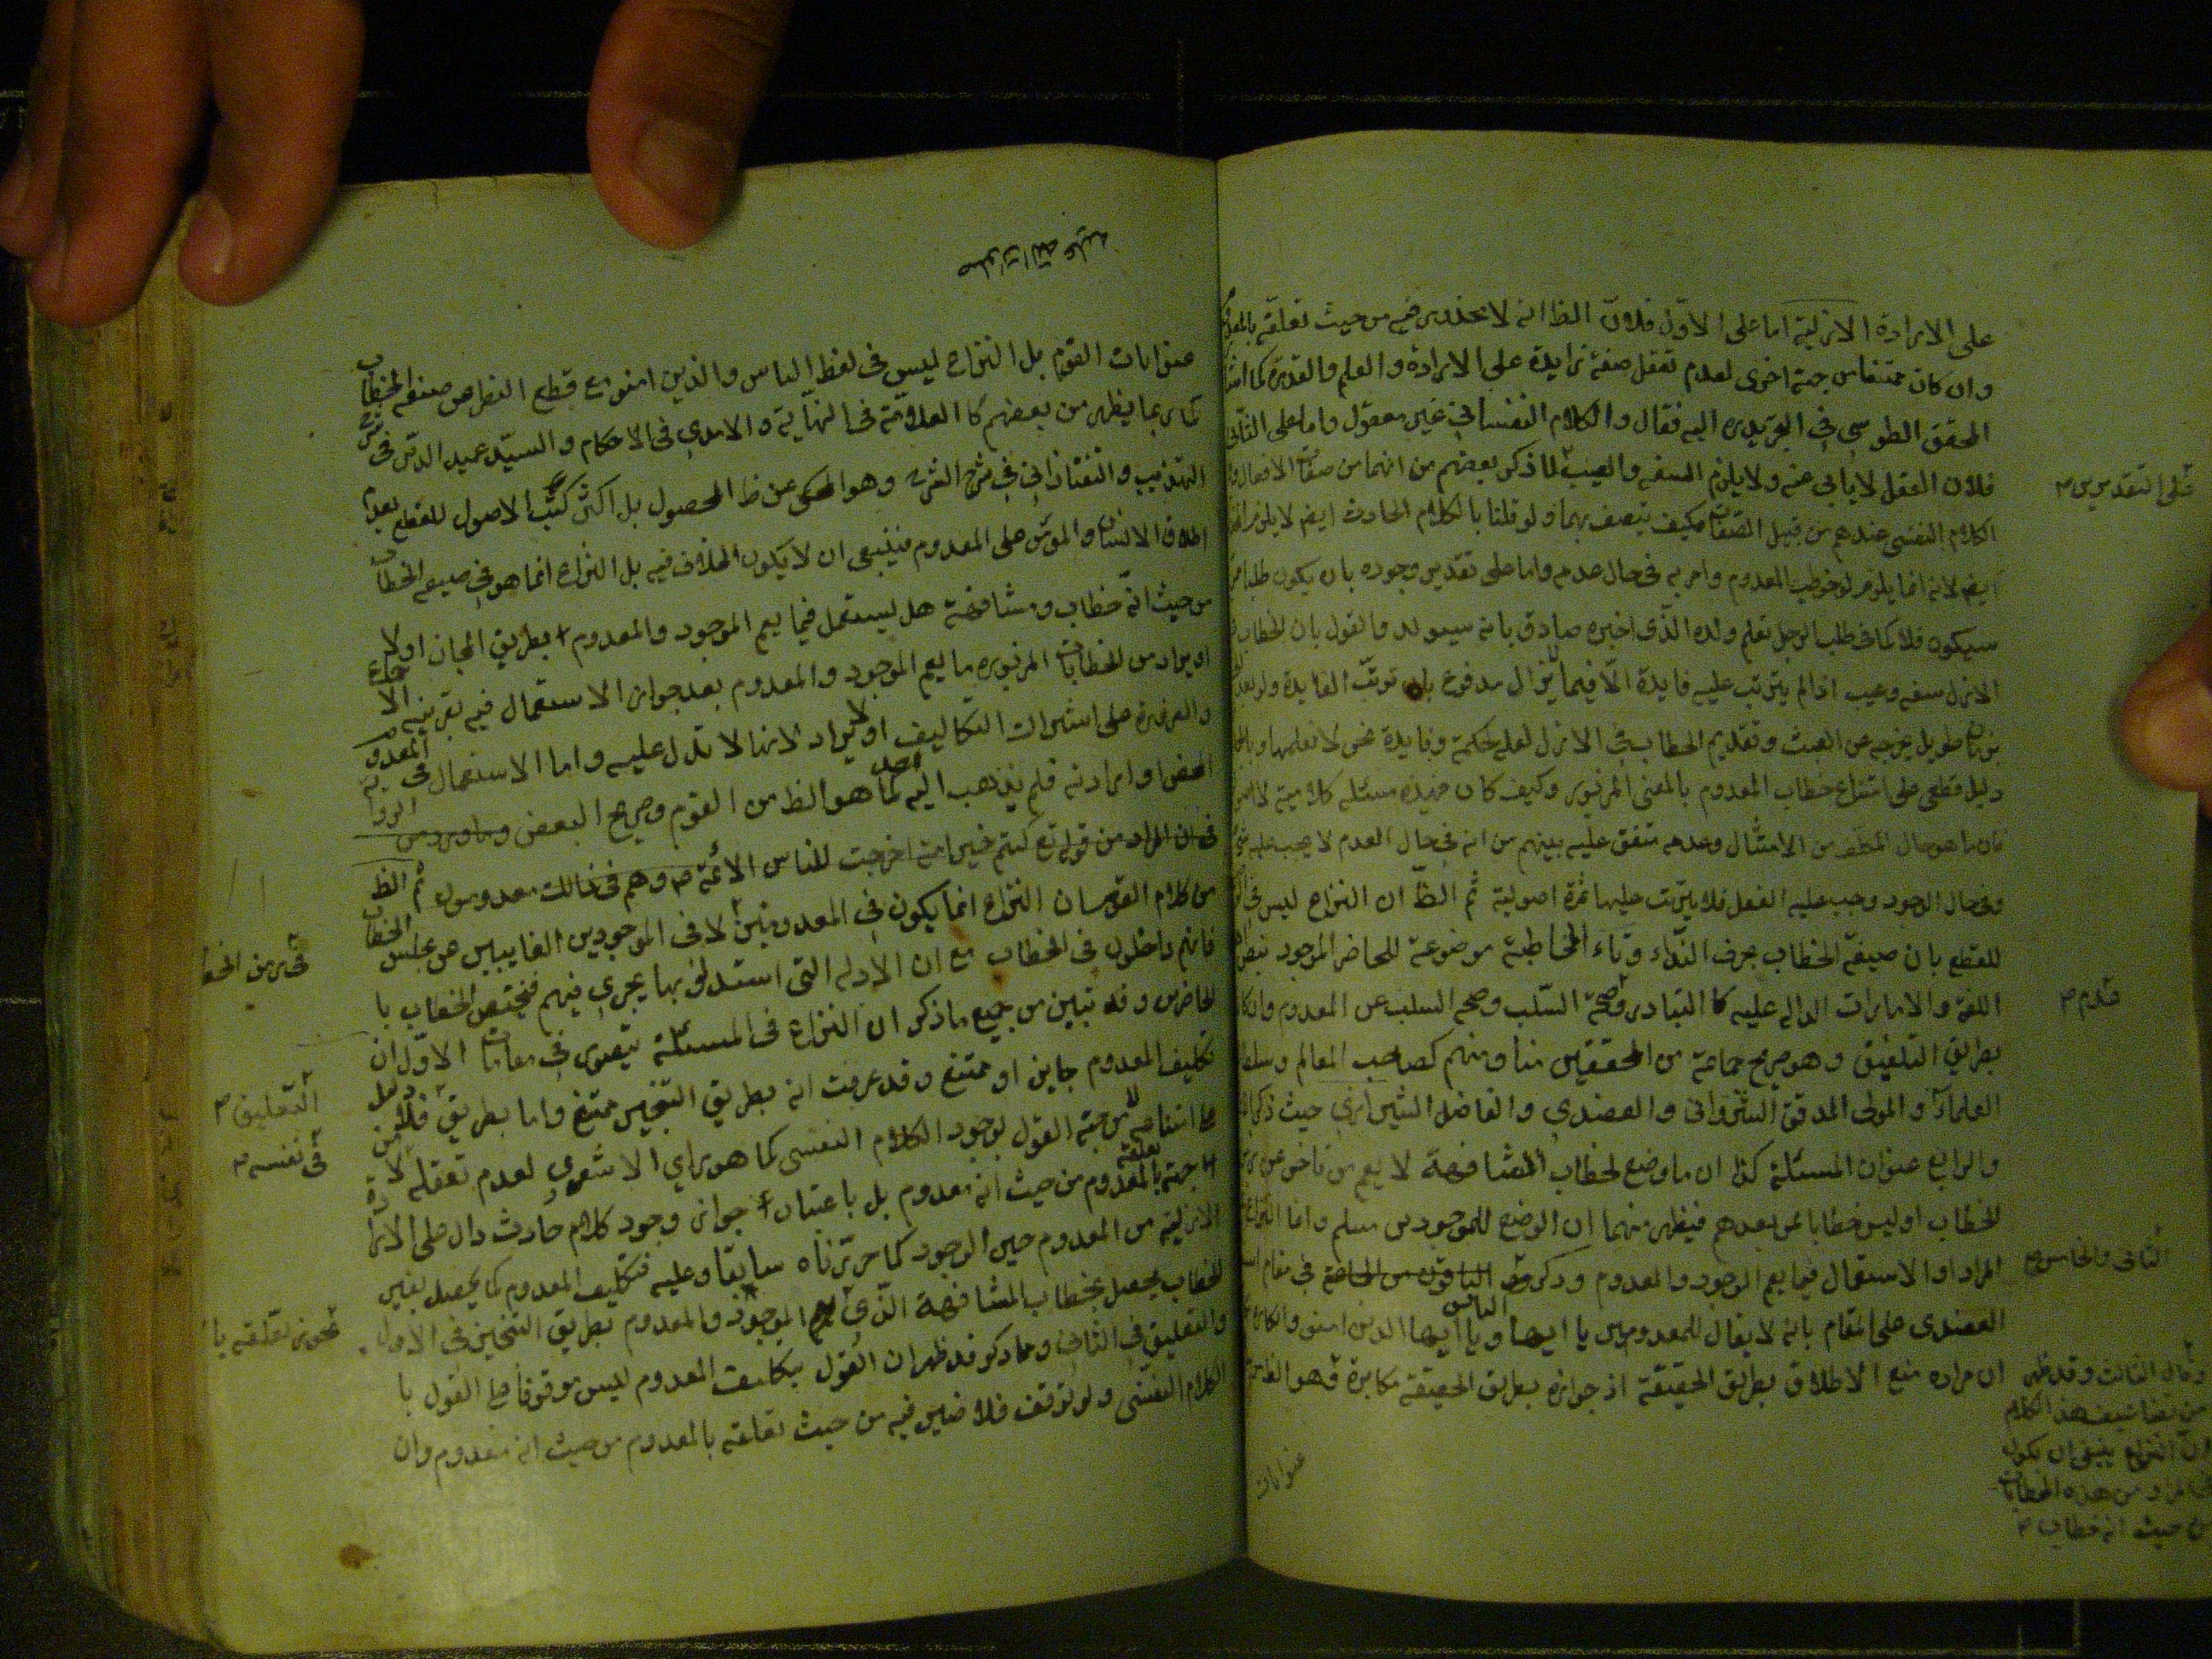 على الارادة الازلية اما على الاول فلان الظ انه لا محذور فيه من حيث تعلقه بالمعدوم
وان كان ممتنعا من جهة اخرى لعدم تعقل صفة زايدة على الارادة والعلم والقدرة كما
المحقق الطوسي في التجريد اليه فقال والكلام النفساني غير معقول واما على الثاني
فلان العقل لا يابى عنه ولا يلزم السفه والعبث لما ذكر بعضهم من انهما من صفات الافعال
الكلام النفسي عندهم من قبيل الصفات فكيف يتصف بهما ولو قلنا بالكلام الحادث ايضا لا يلزم
ايضا لانه انما يلزم لو خوطب المعدوم وامر به في حال عدمه واما على تقدير وجوده بان يكون طلبا
سيكون فلا كما في طلب الرجل تعلم ولده الذي اخبره صادق بانه سيولد والقول بان الخطاب
الازل سفه وعبث اذا لم يترتب عليه فايدة الا فيما لا يزال مدفوع بان ترتب الفايدة ولو بعد
بزمان طويل يخرجه عن العبث وتقديم الخطاب في الازل لعله لحكمة وفايدة نحن لا نعلمها
دليل قطعي على امتناع خطاب المعدوم بالمعنى المزبور وكيف كان فهذه مسئلة كلامية
فان ما هو حال المكلف من الامتثال وعدمه متفق عليه بينهم من انه في حال العدم لا يجب عليه
وفي حال الوجود وجب عليه الفعل فلا يترتب عليها ثمرة اصولية ثم الظ ان النزاع ليس في
للقطع بان صيغة الخطاب بحرف النداء وتاء المخاطبة موضوعة للحاضر الموجود
اللغة والامارات الدالة عليه كالتبادر وصحة السلب وصحة السلب عن المعدوم
بطريق التلفيق وهو صريح جماعة من المحققين منا ومنهم كصاحب المعالم وسلطان
العلماء والمولى المدقق الشرواني والعضدي والفاضل الشيرازي حيث ذكر
والرابع عنوان المسئلة كذا ان ما وضع لخطاب المشافهة لا يعم من تاخر عن
الخطاب او ليس خطابا لمن بعدهم فيظهر منهما ان الوضع للموجودين مسلم وانما النزاع
المراد او الاستعمال فيما يعم الموجود والمعدوم وذكر في مقام
العضدي على المقام بانه لا يقال للمعدومين يا ايها الناس ويا ايها الذين امنوا
ان مراده منع الاطلاق بطريق الحقيقة اذ جوازه بطريق الحقيقة مكابرة
على التقديرين
قدم
الثاني والخامس
وقال الثالث وقد ظهر
هذا الكلام
ان النزاع ينبغي ان يكون
من هذه الخطابات
من حيث انه خطاب
عنوانات
صلوات الله عليه
عنوانات القوم بل النزاع ليس في لفظ الناس والذين امنوا مع قطع النظر عن صيغة الخطاب
كما ربما يظهر من بعضهم كالعلامة في النهاية والامدي في الاحكام والسيد عميد الدين في شرح
التهذيب والتفتازاني في شرح الشرح وهو المحكي عن ظ المحصول بل اكثر كتب الاصول للقطع بعدم
اطلاق الانسان والمؤمن على المعدوم فينبغي ان لا يكون الخلاف فيه بل النزاع انما هو في صيغة الخطاب
من حيث انه خطاب ومشافهة هل يستعمل فيما يعم الموجود والمعدوم بطريق المجاز او لا
او يراد من الخطابات المزبورة ما يعم الموجود والمعدوم بعد جواز الاستعمال فيه بقرينة الاجماع
والضرورة على اشتراك التكاليف او لا يراد لانها لا تدل عليه واما الاستعمال في المعدوم
المحض او ارادته فلم يذهب اليه احد كما هو الظ من القوم وصريح البعض وما ورد من الروا
في ان المراد من قوله تع كنتم خير امة اخرجت للناس الائمة وهم في ذلك معدومون ثم الظ
من كلام القوم ان النزاع انما يكون في المعدومين لا في الموجودين الغايبين عن مجلس الخطاب
فانهم داخلون في الخطاب مع ان الادلة التي استدلوا بها يجري فيهم فيختص الخطاب با
لحاضرين وقد تبين من جميع ما ذكر ان النزاع في المسئلة يتصور في مقامات الاول ان
تكليف المعدوم جايز او ممتنع وقد عرفت انه بطريق التنجيز ممتنع واما بطريق فلا دليل
على امتناعه من جهة القول بوجود الكلام النفسي كما هو راي الاشعري لعدم تعقله لا من
جهة تعلقه بالمعدوم من حيث انه معدوم بل باعتبار جواز وجود كلام حادث دال على الارادة
الازلية من المعدوم حين الوجود كما حررناه سابقا وعليه فتكليف المعدوم كما يحصل بغير
الخطاب يحصل بخطاب المشافهة الذي الموجود والمعدوم بطريق التنجيز في الاول
والتعليق في الثاني ومما ذكر قد ظهر ان القول بتكليف المعدوم ليس موقوفا على القول با
لكلام النفسي ولو توقف فلا ضير فيه من حيث تعلقه بالمعدوم من حيث انه معدوم وان
التعليق
في نفسه